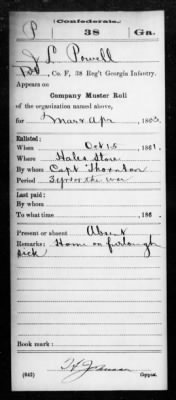 Confederate.
P 38 Ga.
J L Powell
Pvt, Co. F, 38 Reg't Georgia Infantry.
Appears on
Company Muster Roll
of the organization named above,
for Mar & Apr, 1863.
Enlisted:
When Oct 15, 1861.
Where Hales Store
By whom Capt Thornton
Period 3 yrs or the war
Last paid:
By whom
To what time , 186 .
Present or absent Absent
Remarks: Home on furlough
sick
Book mark:
(642) Copyist.